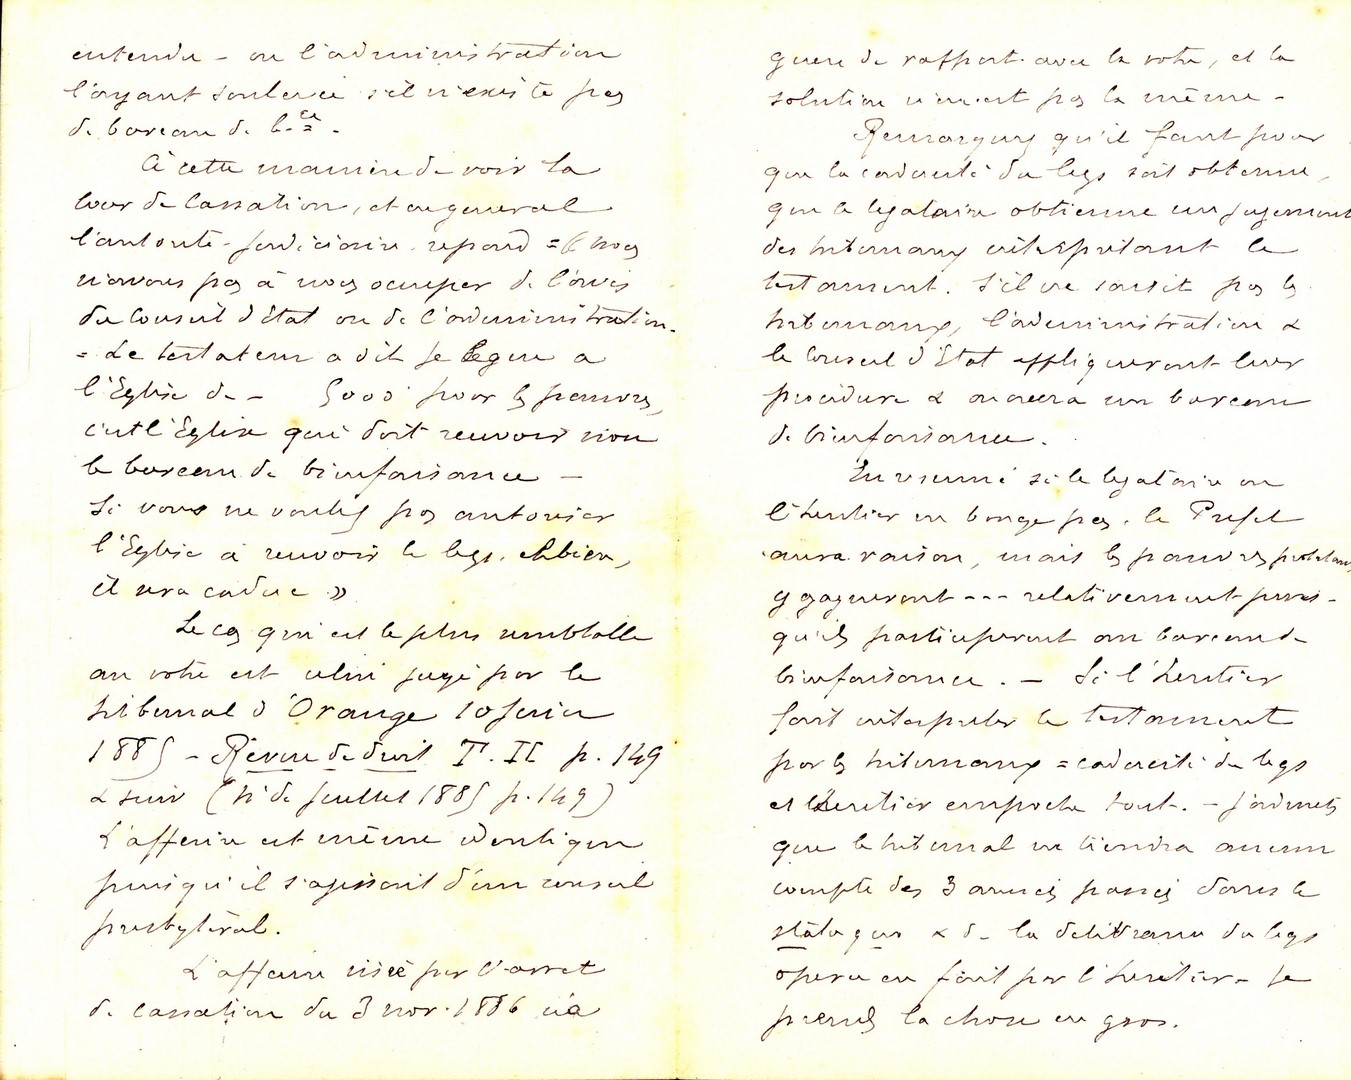 entendu – ou l'administration
l'ayant soulevée s'il n'existe pas
de bureau de b.ce –
À cette manière de voir la
Cour de Cassation, et en général
l'autorité judiciaire répond = « nous
n'avons pas à nous occuper de l'avis
du Conseil d'Etat ou de l'administration –
= Le testateur a dit je lègue à
l'Eglise de – 5000 pour les pauvres,
c'est l'Eglise qui doit recevoir non
le bureau de bienfaisance –
Si vous ne voulez pas autoriser
l'Eglise à recevoir le legs, eh bien,
il sera caduc »
Le cas qui est le plus semblable
au votre est celui jugé par le
tribunal d'Orange 10 février
1885 – Revue de droit T. II p. 149
& suiv (N° de Juillet 1885 p. 149)
L'affaire est même identique
puisqu'il s'agissait d'un conseil
presbytéral.
L'affaire visée par l'arret
de cassation du 3 nov. 1886 n'a
guère de rapport avec la votre, et la
solution n'en est pas la même –
Remarquez qu'il faut pour
que la caducité du legs soit obtenue,
que le légataire obtienne un jugement
des tribunaux interprétant le
testament. S'il ne saisit pas les
tribunaux, l'administration &
le Conseil d'Etat appliqueront leur
procédure & on créera un bureau
de bienfaisance.
En résumé si le légataire ou
l'héritier ne bouge pas, le Préfet
aura raison, mais les pauvres protestants
y gagneront --- relativement puis-
qu'ils participeront au bureau de
bienfaisance. – Si l'héritier
fait interpréter le testament
par les tribunaux = caducité du legs
et l'héritier empoche tout. – J'admets
que le tribunal ne tiendra aucun
compte des 3 années passées dans le
statu quo & de la délivrance du legs
opérée en fait par l'héritier – Je
prends la chose en gros.